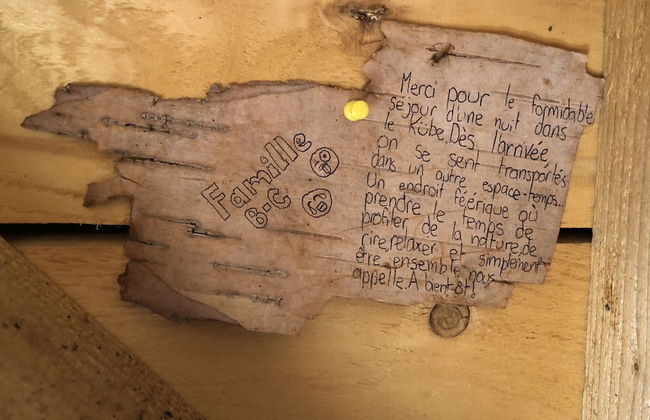 Famille
B-C
Merci pour le formidable
séjour d'une nuit dans
le Kübe. Dès l'arrivée
on se sent transportés
dans un autre espace-temps...
Un endroit féérique où
prendre le temps de
profiter de la nature, de
rire, relaxer et simplement
être ensemble nous
appelle. A bientôt!